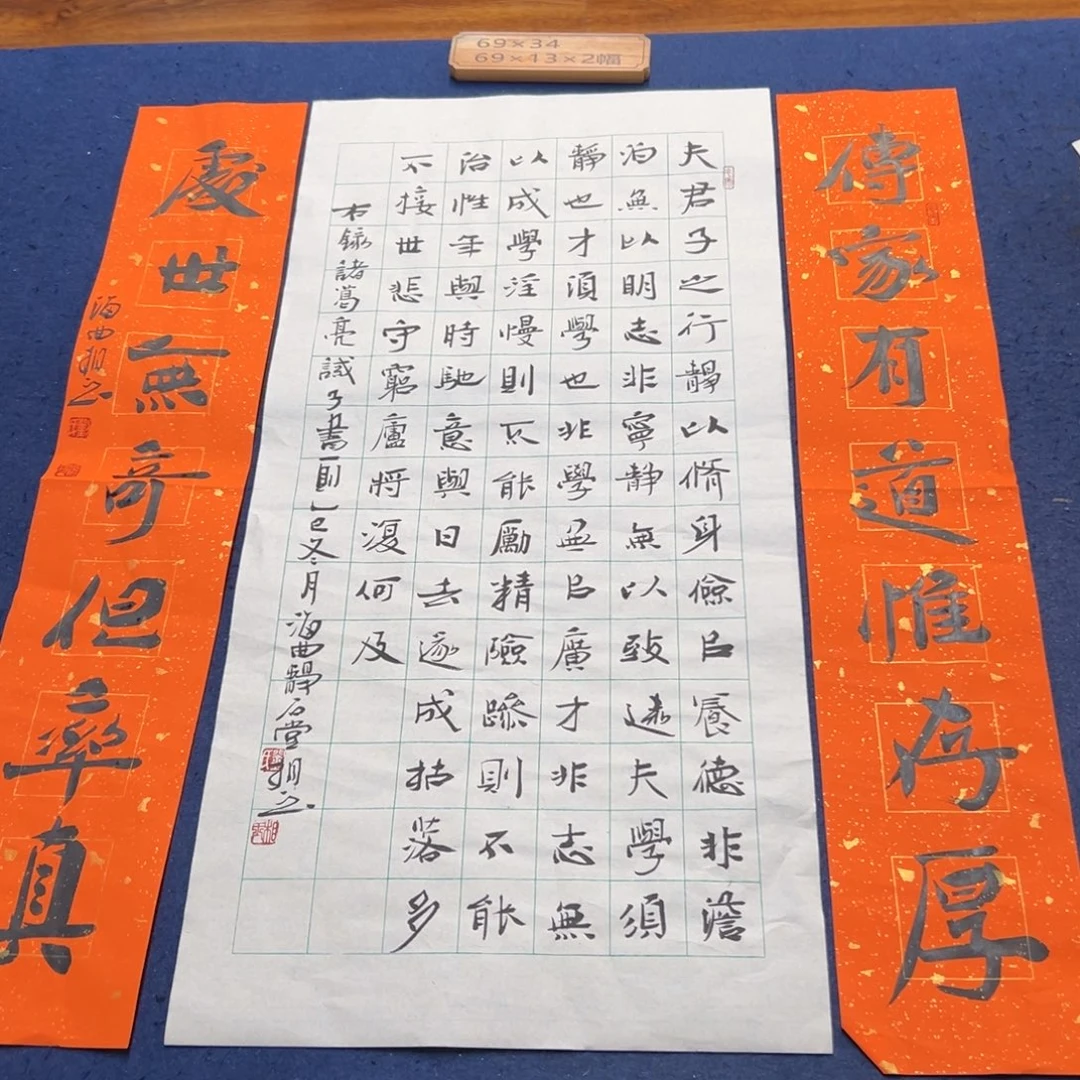 69×34
69×13×2幅
傳家有道惟存厚
夫君子之行靜以脩身儉以養德非澹
泊無以明志非寧靜無以致遠夫學須
靜也才須學也非學無以廣才非志無
以成學淫慢則不能勵精險躁則不能
治性年與時馳意與日去遂成枯落多
不接世悲守窮廬將復何及
右錄諸葛亮誡子書一則乙巳冬月海曲靜石堂相之
處世無奇但率真
海曲相之